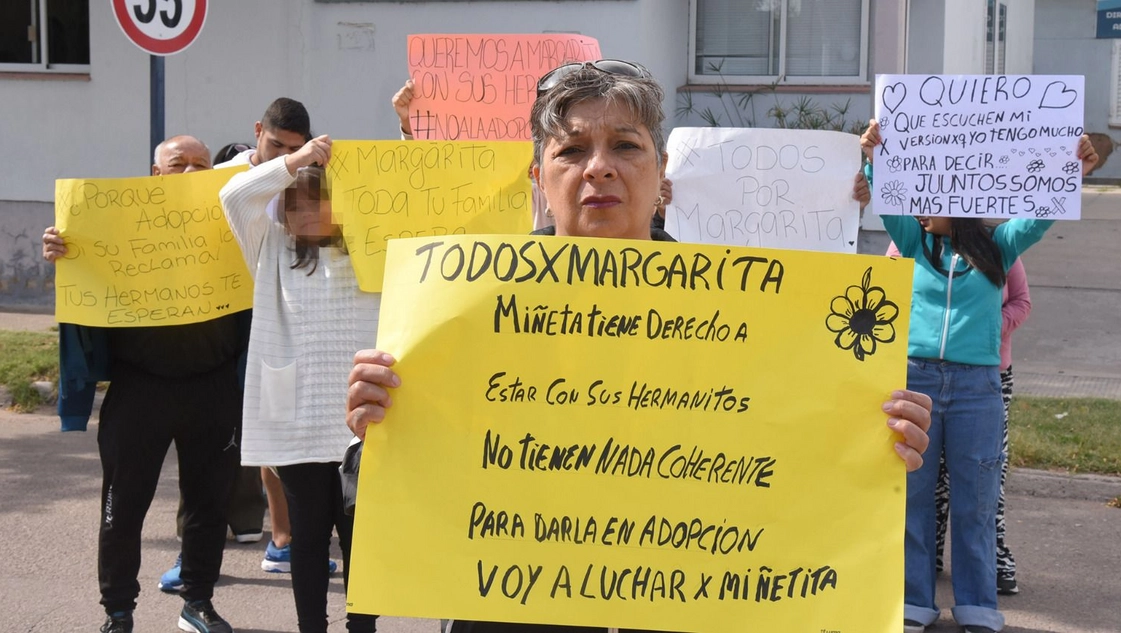 55
QUEREMOS A MARGARIT
CON SUS HER
#NOALAADOP
X MARGARITA
TODA TU FAMILIA
ESPERA
PORQUE
ADOPCIO
SI SU FAMILIA LA
RECLAMA!
TUS HERMANOS TE
ESPERAN
X TODOS
POR
MARGARITA
QUIERO
QUE ESCUCHEN MI
VERSION XQ YO TENGO MUCHO
PARA DECIR
JUUNTOS SOMOS
MAS FUERTES X
TODOS X MARGARITA
MI ÑETA TIENE DERECHO A
ESTAR CON SUS HERMANITOS
NO TIENEN NADA COHERENTE
PARA DARLA EN ADOPCION
VOY A LUCHAR X MI ÑETITA